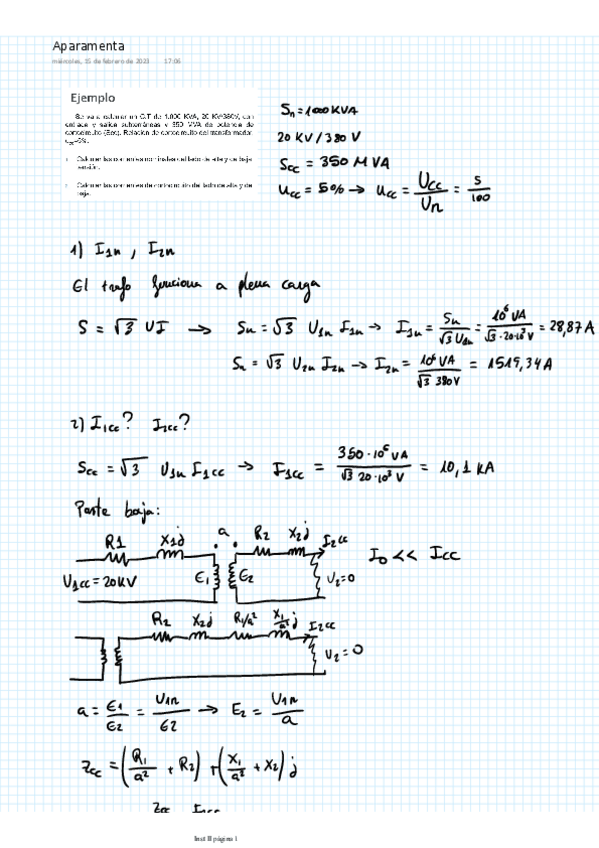 Aparamenta
miércoles, 15 de febrero de 2023 17:06
Ejemplo
Se va a calcular un C.T de 1.000 KVA, 20 KV/380V, con
enlace y salida subterráneas y 350 MVA de potencia de
cortocircuito (Scc). Relación de cortocircuito del transformador
ucc=5%.
Calcular las corrientes nominales del lado de alta y de baja
tensión.
Calcular las corrientes de cortocircuito del lado de alta y de
baja.
Sn = 1000 KVA
20 KV / 380 V
Scc = 350 MVA
ucc = 5% → ucc = Ucc/Un = 5/100
1) I1n , I2n
El trafo funciona a plena carga
S = √3 UI → Sn = √3 U1n I1n → I1n = Sn/√3 U1n = 10⁶ VA/√3 · 20·10³ V = 28,87 A
Sn = √3 U2n I2n → I2n = 10⁶ VA/√3 380V = 1519,34 A
2) I1cc? I2cc?
Scc = √3 U1n I1cc → I1cc = 350·10⁶ VA/√3 20·10³ V = 10,1 KA
Parte baja:
R1 X1j a R2 X2j I2cc
I0 << Icc
U1cc = 20KV E1 E2 U2=0
R2 X2j R1/a² X1/a² j I2cc
U2 = 0
a = E1/E2 = U1n/E2 → E2 = U1n/a
Zcc = (R1/a² + R2) + (X1/a² + X2) j
Zcc I1cc
Inst II página 1